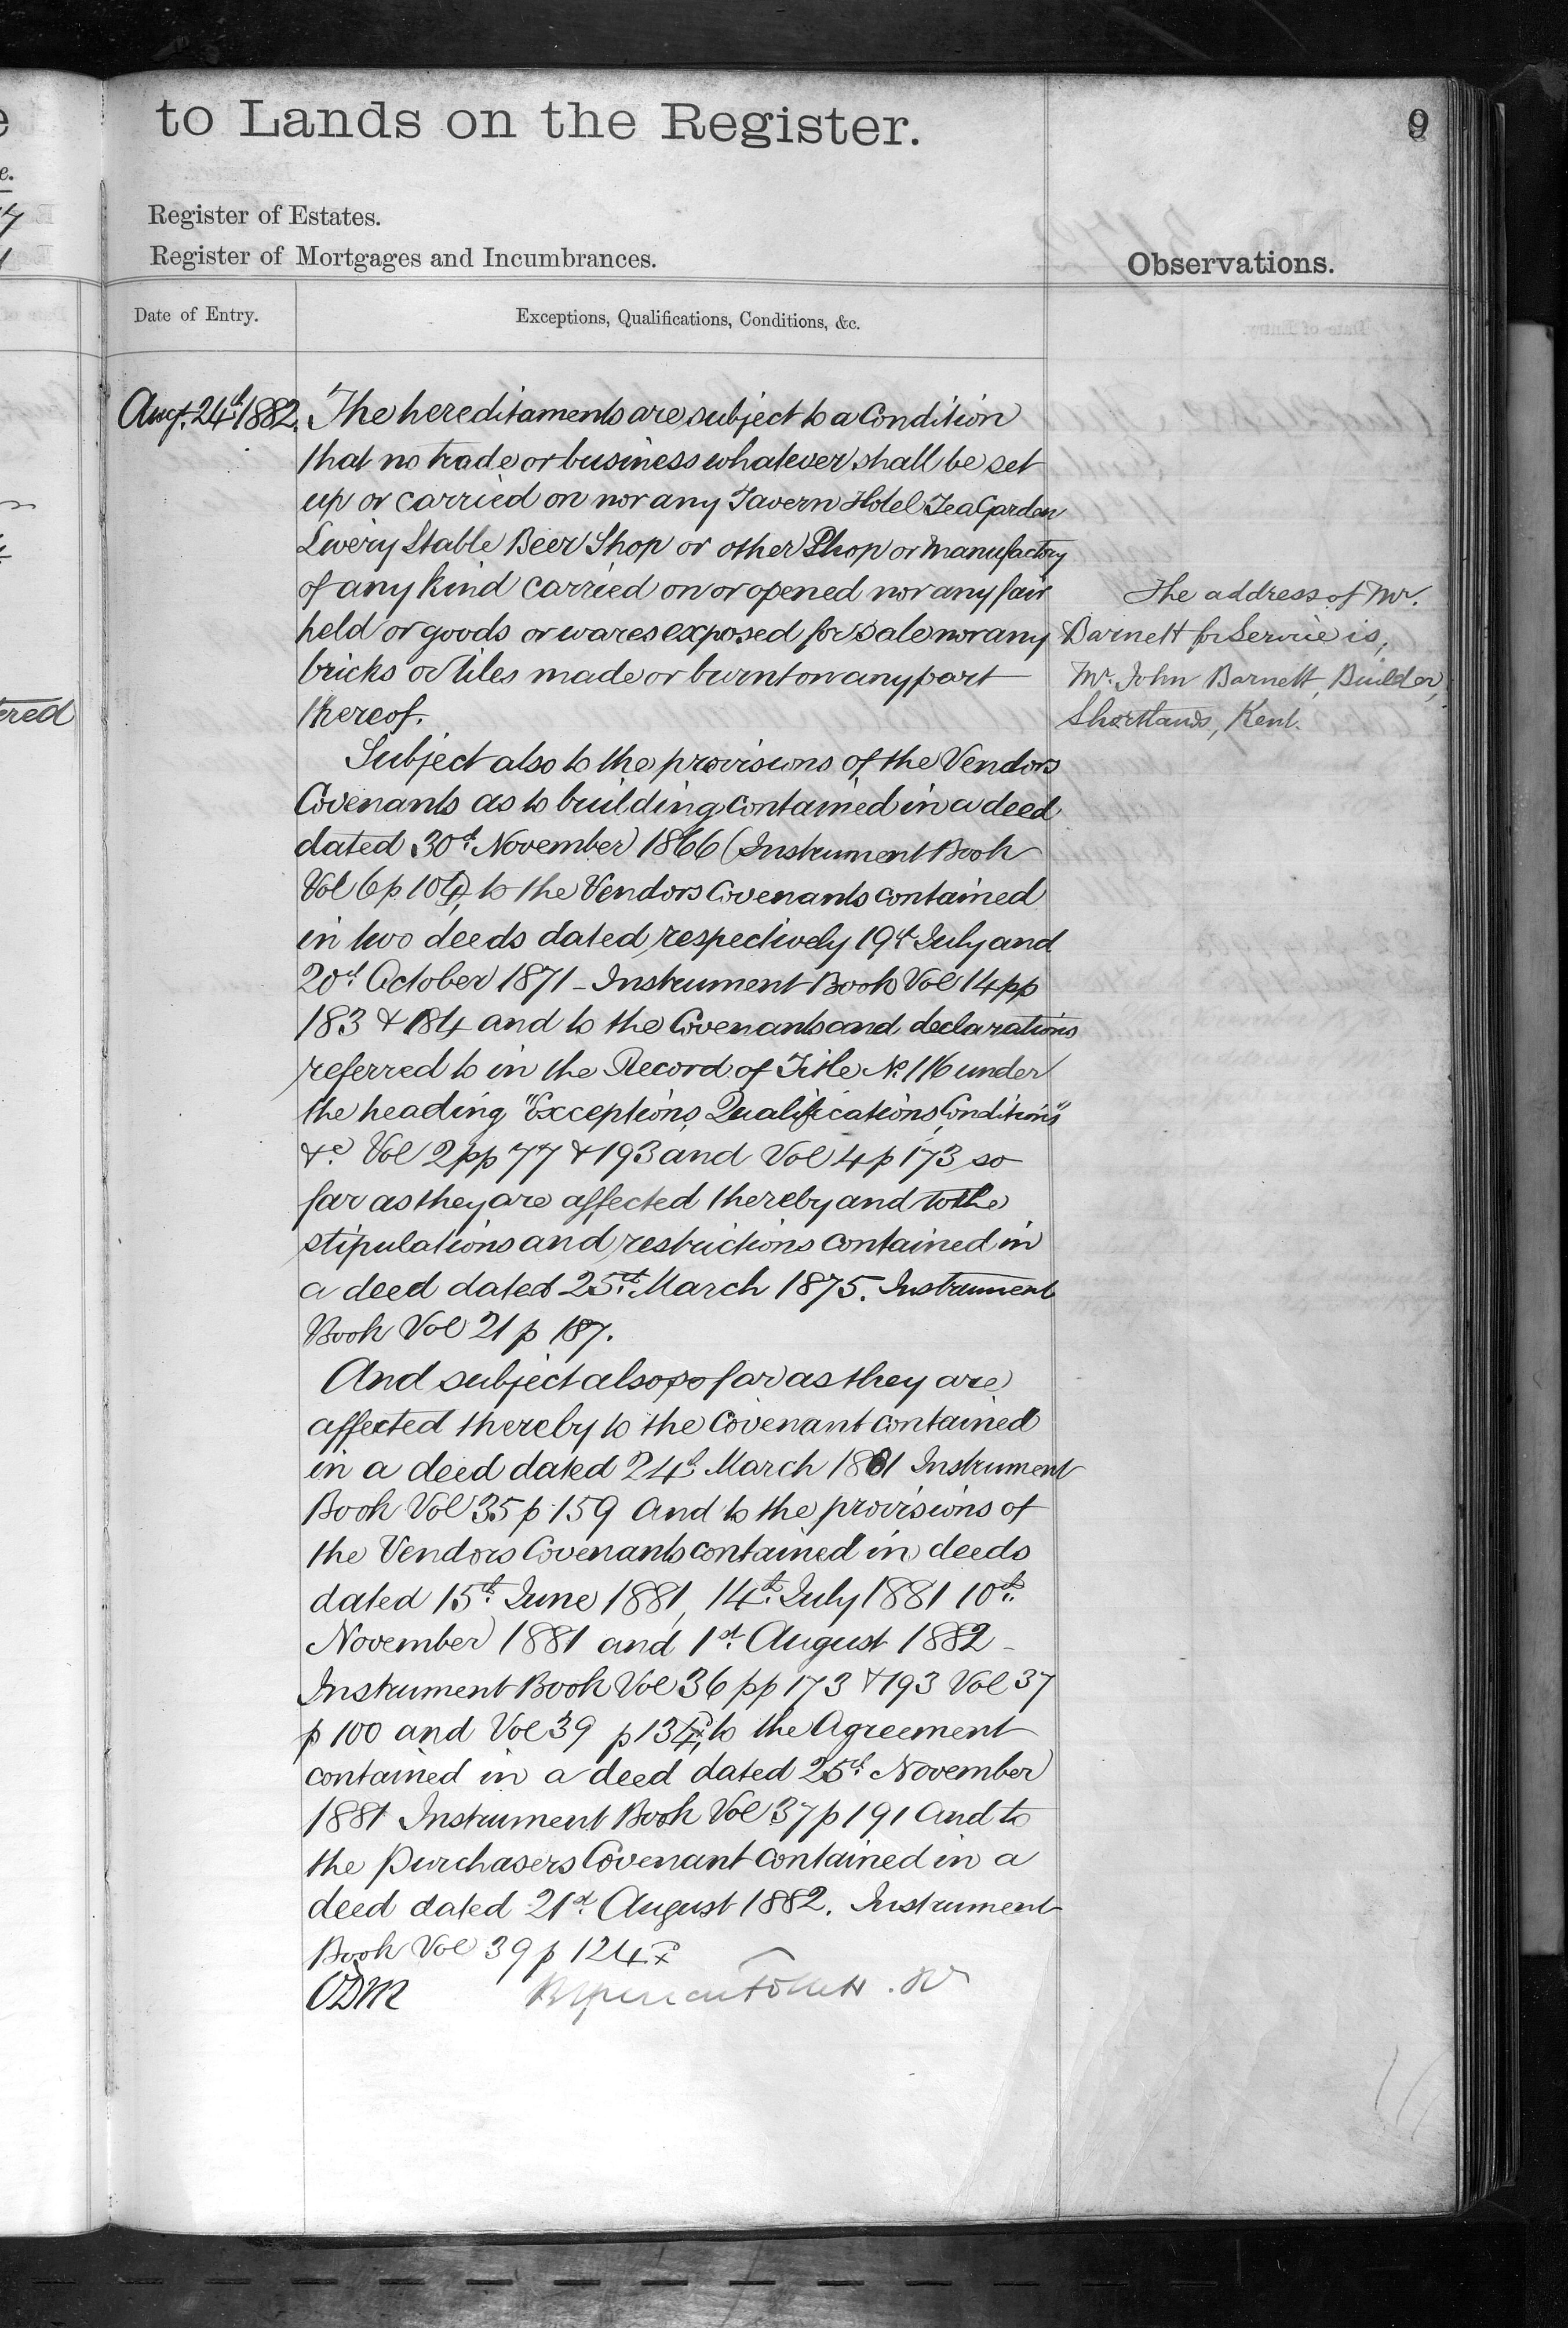 to Lands on the Register.
9
Register of Estates.
Register of Mortgages and Incumbrances.
Observations.
Date of Entry.
Exceptions, Qualifications, Conditions, &c.
Augt. 24th 1882. The hereditaments are subject to a Condition
that no trade or business whatever shall be set
up or carried on nor any Tavern Hotel Tea Garden
Livery Stable Beer Shop or other Shop or Manufactory
of any kind carried on or opened nor any fair
held or goods or wares exposed for sale nor any
bricks or tiles made or burnt on any part
thereof.
Subject also to the provisions of the Vendors
Covenants as to building contained in a deed
dated 30th November 1866 (Instrument Book
Vol 6 p 104), to the Vendors Covenants contained
in two deeds dated respectively 19th July and
20th October 1871 - Instrument Book Vol 14 pp
183 & 184 and to the Covenants and declarations
referred to in the Record of Title No. 116 under
the heading "Exceptions, Qualifications, Conditions"
&c. Vol 2 pp 77 & 193 and Vol 4 p 173 so
far as they are affected thereby and to the
stipulations and restrictions contained in
a deed dated 25th March 1875. Instrument
Book Vol 21 p 187.
And subject also so far as they are
affected thereby to the Covenant contained
in a deed dated 24th March 1881 Instrument
Book Vol 35 p 159 And to the provisions of
the Vendors Covenants contained in deeds
dated 15th June 1881, 14th July 1881 10th
November 1881 and 1st August 1882 -
Instrument Book Vol 36 pp 173 & 193 Vol 37
p 100 and Vol 39 p 134, to the Agreement
contained in a deed dated 25th November
1881 Instrument Book Vol 37 p 191 And to
the Purchasers Covenant contained in a
deed dated 21st August 1882. Instrument
Book Vol 39 p 124
The address of Mr.
Barnett for Service is,
Mr. John Barnett, Builder,
Shortlands, Kent.
ered